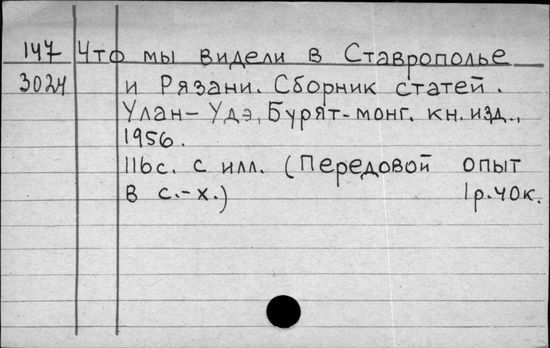 147 Что мы видели в Ставрополье
3024 и Рязани. Сборник статей.
Улан-Удэ, Бурят-монг. кн. изд.,
1956.
116с. с илл. (Передовой опыт
в с.-х.) 1р.40к.